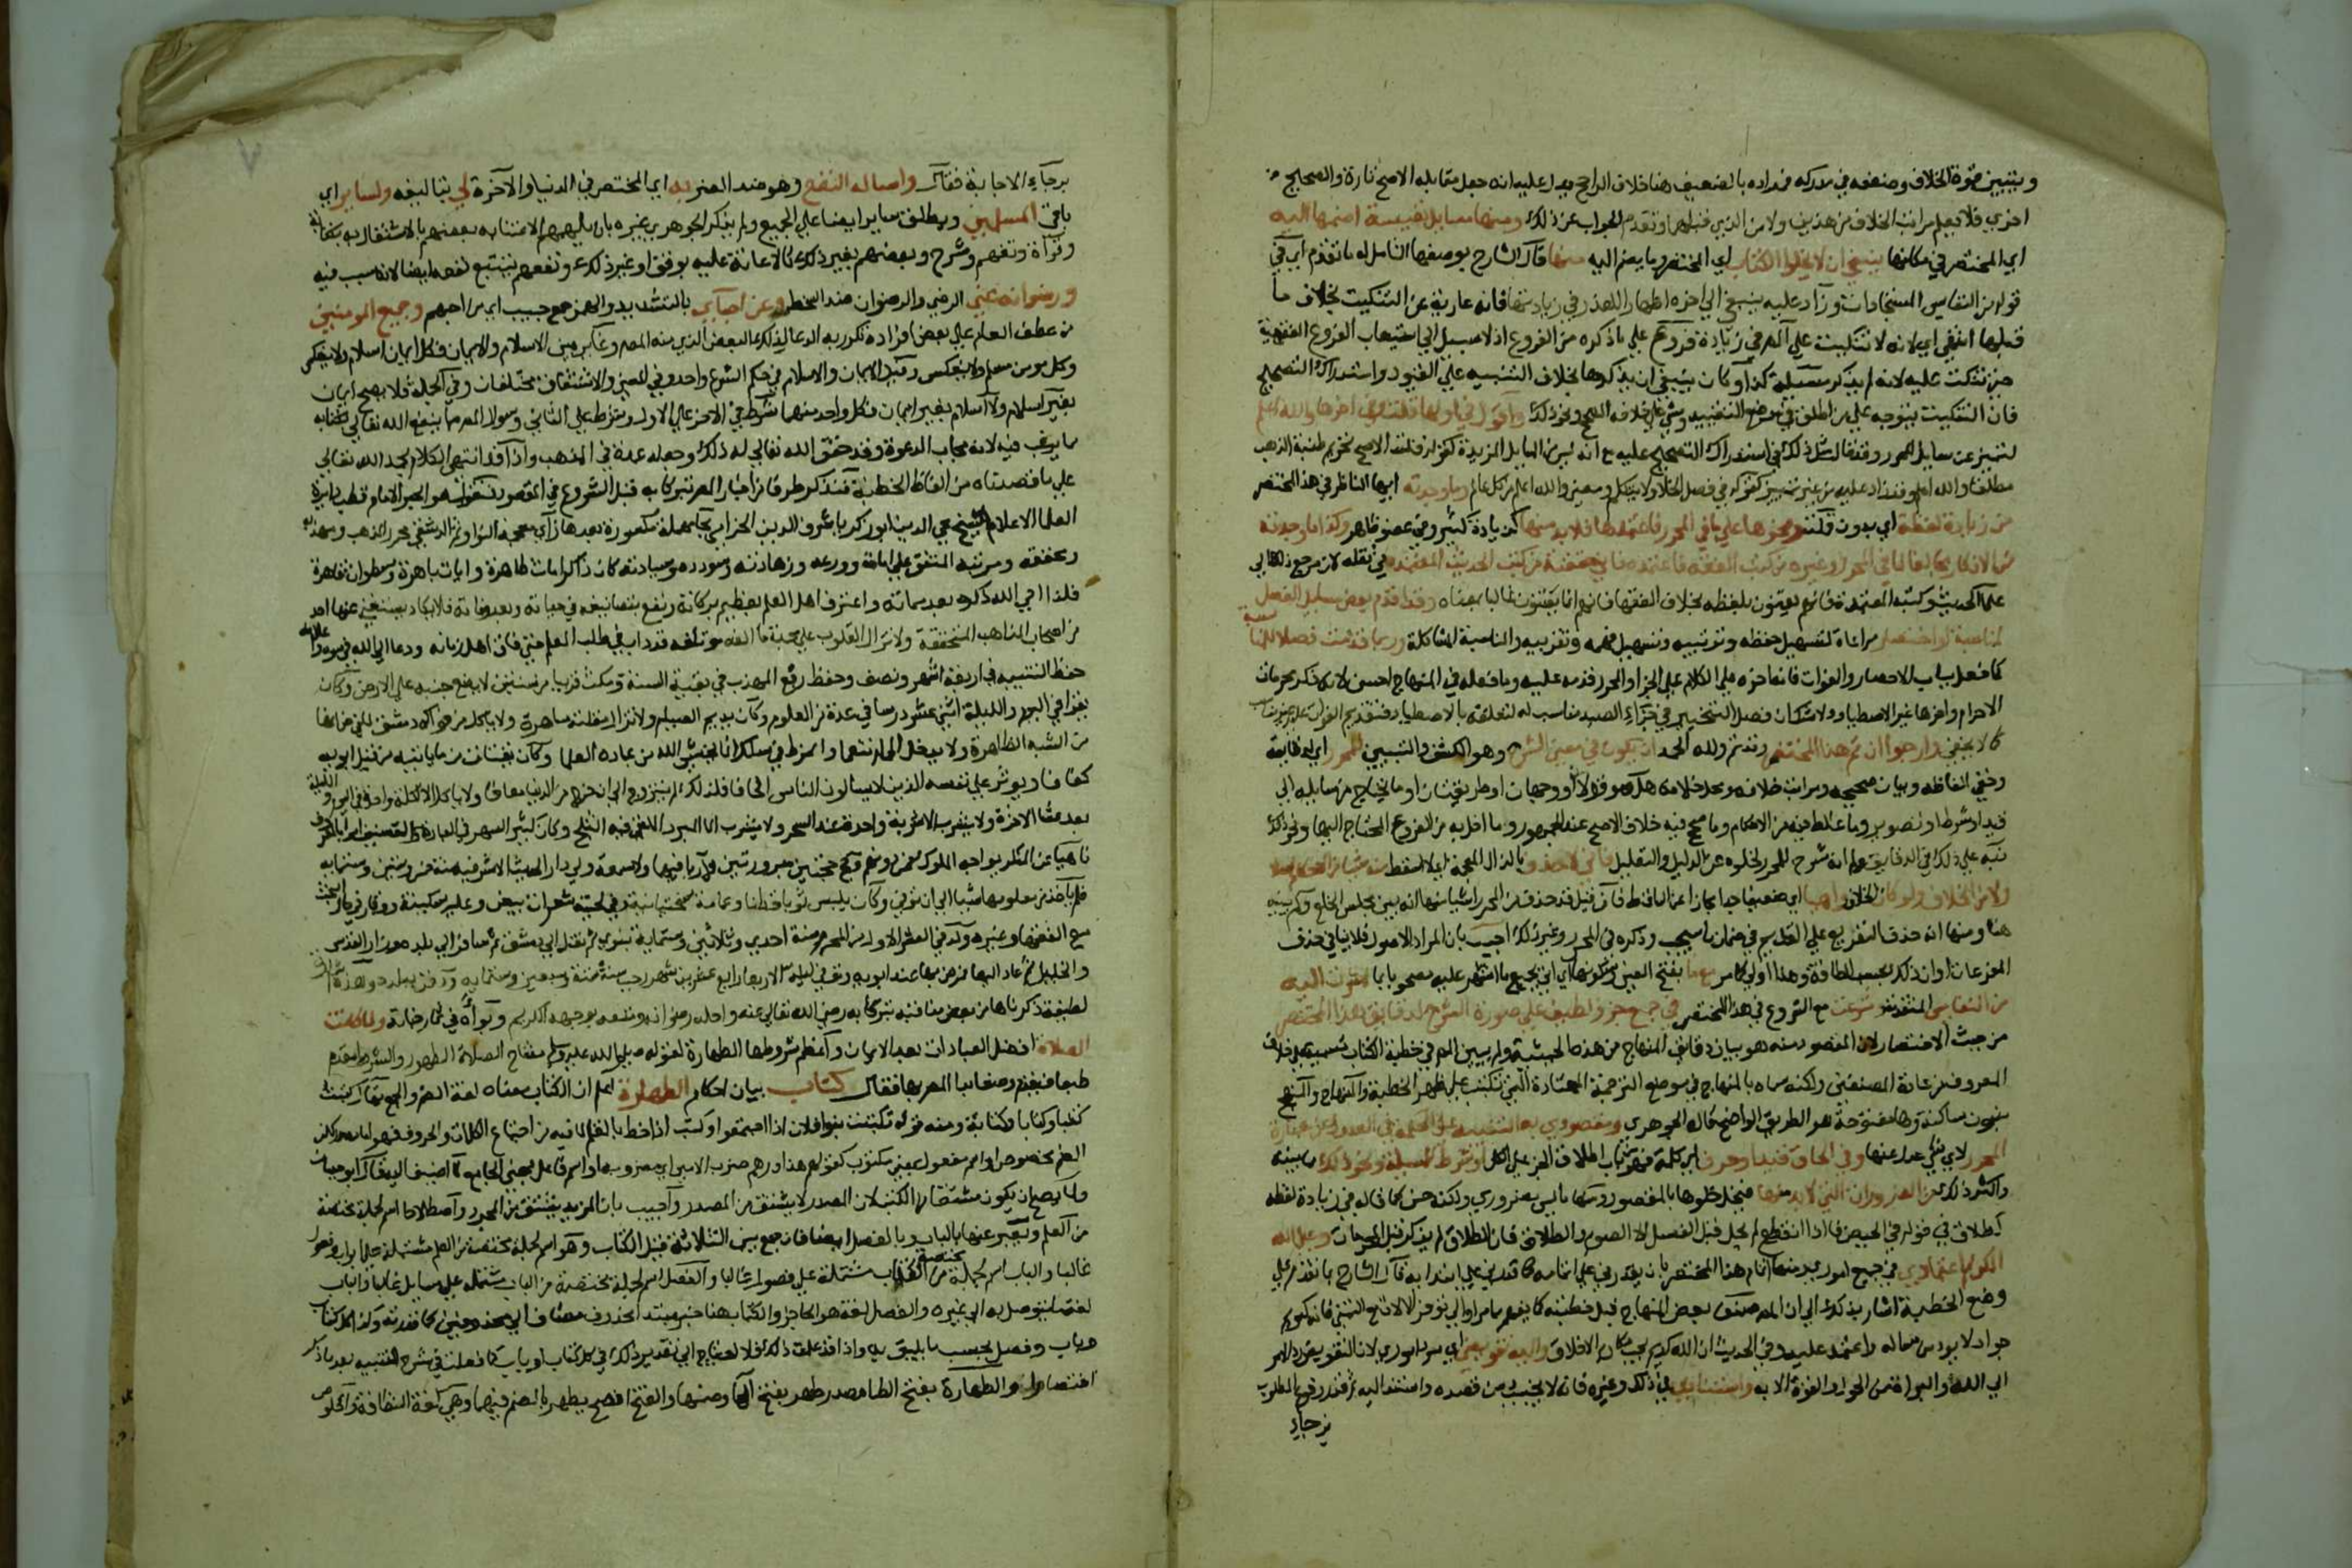 ويتبين قوة الخلاف وضعفه في مدركه فمراده بالضعيف هنا خلاف الراجح يدل عليه انه جعل مقابله الاصح تارة والصحيح
اخري فلا يعلم مراتب الخلاف من هذين ولا من الذين قبلهما وتقدم الجواب عن ذلك ومنها مسايل نفيسة اضمها اليه
اي المختصر في مكانها ينبغي ان لا يخلي الكتاب اي المختصر وما يضم اليه منها قال الشارح بوصفها الشامل له ما تقدم اي في
قوله من النفايس المستجادات وزاد عليه ينبغي الي اخره اظهارا للعذر في زيادتها فانه عارية عن التنكيت بخلاف ما
قبلها انتهي اي لانه لا تنكيت علي في زيادة فروع علي ما ذكره من الفروع اذ لا سبيل الي استيعاب الفروع الفقهية
حتي تنكت عليه لانه لم يذكر مسيلة كذا وكان ينبغي ان يذكرها بخلاف التنبيه علي القيود واستدراك التصحيح
فان التنكيت يتوجه علي من اطلق في موضع التقييد ومشي علي خلاف الصحيح ونحو ذلك واقول في اولها قلت وفي اخرها والله اعلم
لتتميز عن مسايل المحرر وقد قال مثل ذلك في استدراك التصحيح عليه مع انه ليس من المسايل المزيدة كقوله قلت الاصح تحريم ضبة الذهب
مطلقا والله اعلم وقد زاد عليه من غير تمييز كقوله في فصل الخلا ولا يتكلم ومعني والله اعلم من كل عالم وما وجدته ايها الناظر في هذا المختصر
من زيادة لفظة اي بدون قلت ونحوها علي ما في المحرر فاعتمدها فلا بد منها كزيادة كثير وفي عضو ظاهر وكذا ما وجدته
من الاذكار مخالفا لما في المحرر وغيره من كتب الفقه فاعتمده فاني حققته من كتب الحديث المعتمدة في نقله لان مرجع ذلك الي
علما الحديث وكتبه المعتمدة فانهم يعتنون بلفظه بخلاف الفقها فانهم انما يعتنون غالبا بمعناه وقد اقدم بعض مسايل الفصل
لمناسبة او اختصار مراعاة لتسهيل حفظه وترتيبه وتسهيل فهمه وتقريبه والمناسبة المشاكلة وربما قدمت فصلا للمناسبة
كما فعل بباب الاحصار والفوات فانه اخره علي الكلام علي الجزا والمحرر قدمه عليه وما فعله في المنهاج احسن لانه ذكر محرمات
الاحرام واخرها غير الاصطياد ولا شك ان فصل التخيير في جزاء الصيد مناسب له لتعلقه بالاصطياد فتقديم الفوات عليه
كما لا يخفي وارجوا ان تم هذا المختصر وقد تم ولله الحمد ان يكون في معني الشرح وهو الكشف والتبيين للمحرر اي لدقايقه
وخفي الفاظه وبيان صحيحه ومراتب خلافه ومحل خلافه هل هو قولان او وجهان او طريقان او ما يحتاج من مسايله الي
قيد او شرط او تصوير وما غلط فيه من الاحكام وما صحح فيه خلاف الاصح عند الجمهور وما اخل به من الفروع المحتاج اليها ونحو ذلك
نبه علي ذلك في الدقايق وليس شرح للمحرر لخلوه عن الدليل والتعليل فاني لا احذف بالذال المعجمة اي لا اسقط منه شيا من الاحكام اصلا
ولا من الخلاف ولو كان الخلاف واهيا اي ضعيفا جدا مجازا عن الساقط فان قيل قد حذف من المحرر اشيا منها انه بين مجلس الخلع ولم يبينه
هنا ومنها انه حذف التفريع علي القديم في ضمان ما سيجب وذكره في المحرر وغير ذلك اجيب بان المراد الاصول فلا ينافي حذف
المفرعات او ان ذلك بحسب الطاقة وهذا اولي كما مر مع ما بفتح العين وسكونها اي اتي بجميع ما اشتمل عليه مصحوبا بما اشرت اليه
من النفايس المتقدمة وقد شرعت مع الشروع في هذا المختصر في جمع جزء لطيف علي صورة الشرح لدقايق هذا المختصر
من حيث الاختصار لان المقصود منه هو بيان دقايق المنهاج من هذه الحيثية ولم يبين المصنف في خطبة الكتاب تسميته علي خلاف
المعروف من عادة المصنفين ولكنه سماه بالمنهاج في موضع الترجمة المعتادة التي تكتب علي ظهر الخطبة والمنهاج والمنهج
بنون ساكنة وها مفتوحة هو الطريق الواضح قاله الجوهري ومقصودي به التنبيه علي الحكمة في العدول عن عبارة
المحرر لاي شي عدل عنها وفي الحاق قيد او حرف اي كلمة فهو من باب اطلاق الجزء علي الكل او شرط للمسيلة ونحو ذلك مما بينه
واكثر ذلك من الضروريات التي لا بد منها فيخل خلوها بالمقصود ومنها ما ليس بضروري ولكنه حسن كما قاله في زيادة لفظة
الطلاق في قوله في الحيض فاذا انقطع لم يحل قبل الغسل الا الصوم والطلاق فان الطلاق لم يذكر قبل المحرمات وعلي الله
الكريم اعتمادي في جميع اموري ومنها اتمام هذا المختصر بان يقدرني علي اتمامه كما قدرني علي ابتدايه قال الشارح بما تقدم علي
وضع الخطبة اشار بذلك الي ان المصنف صنف بعض المنهاج قبل خطبته كما يفهم مما مر واليه فانه كريم
جواد لا يرد من ساله واعتمد عليه وفي الحديث ان الله كريم يحب مكارم الاخلاق واليه تفويضي اي مرد اموري لان التفويض رد الامر
الي الله والبراة من الحول والقوة الا به واستنادي في ذلك وغيره فانه لا يخيب من قصده واستند اليه ثم قدر وقوع المطلوب
برجاء
برجاء الاجابة فقال واساله النفع وهو ضد الضر به اي المختصر في الدنيا والآخرة لي بتاليفه ولساير اي
باقي المسلمين ويطلق ساير ايضا علي الجميع ولم يذكر الجوهري غيره بان يلهمهم الاعتناء به بعضهم بالاشتغال به ككتابة
وقراة وتفهم وشرح وبعضهم بغير ذلك كالاعانة عليه بوقف او غير ذلك ونفعهم يستتبع نفعه ايضا لانه سبب فيه
ورضوانه عني الرضي والرضوان ضد السخط وعن احبائي بالتشديد والهمز جمع حبيب اي من احبهم وجميع المومنين
من عطف العام علي بعض افراده تكرر به الدعا لذلك البعض الذي منه المصنف وغاير بين الاسلام والايمان فكل ايمان اسلام ولا ينعكس
وكل مومن مسلم ولا ينعكس وقيل الايمان والاسلام في حكم الشرع واحد وفي المعني والاشتقاق مختلفان وفي الجملة فلا يصح ايمان
بغير اسلام ولا اسلام بغير ايمان فكل واحد منهما شرط في الاخر علي الاول وشرط علي الثاني وسوال المصنف ربما ينفع الله تعالي بكتابه
مما يرغب فيه لانه مجاب الدعوة وقد حقق الله تعالي له ذلك وجعله عمدة في المذهب واذ قد انتهي الكلام بحمد الله تعالي
علي ما قصدناه من الفاظ الخطبة فنذكر طرفا من اخبار المصنف تبركا به قبل الشروع في المقصود فنقول هو الحبر الامام قطب دايرة
العلما الاعلام الشيخ محي الدين ابو زكريا يحيي بن شرف الدين الحزامي بحاء مهملة مكسورة بعدها زاي معجمة النواوي ثم الدمشقي محرر المذهب ومهذبه
ومحققه ومرتبه المتفق علي امامته وورعه وزهادته وسودده وسيادته كان ذا كرامات ظاهرة وايات باهرة وسطوات قاهرة
فلذا احي الله ذكره بعد مماته واعترف اهل العلم بعظيم بركاته ونفع بتصانيفه في حياته وبعد وفاته فلا يكاد يستغني عنها احد
من اصحاب المذاهب المختلفة ولا تزال القلوب علي محبة ما الفه موتلفة قد داب في طلب العلم حتي فاق اهل زمانه ودعا الي الله في سره وعلانيته
حفظ التنبيه في اربعة اشهر ونصف وحفظ ربع المهذب في بقية السنة ومكث قريبا من سنتين لا يضع جنبه علي الارض وكان
يقرا في اليوم والليلة اثني عشر درسا في عدة من العلوم وكان يديم الصيام ولا تزال مقلته ساهرة ولا ياكل من فواكه دمشق لما في ضمانها
من الشبه الظاهرة ولا يدخل الحمام تنعما وانخرط في سلك انما يخشي الله من عباده العلما وكان يقتات مما ياتيه من قبل ابويه
كفافا ويوثر علي نفسه الذين لا يسالون الناس الحافا فلذلك لم يتزوج الي ان خرج من الدنيا معافا ولا ياكل الا اكلة واحدة في اليوم والليلة
بعد عشا الاخرة ولا يشرب الا شربة واحدة عند السحر ولا يشرب الماء المبرد الملقي فيه الثلج وكان كثير السهر في العبادة والتصنيف امرا بالمعروف
ناهيا عن المنكر يواجه الملوك فمن دونهم وحج حجتين مبرورتين لا ريا فيهما ولا سمعة وولي دار الحديث الاشرفية سنة خمس وستين وستماية
فلم ياخذ من معلومها شيا الي ان توفي وكان يلبس ثوبا قطنا وعمامة سختيانية وفي لحيته شعرات بيض وعليه سكينة ووقار في حال البحث
مع الفقها وغيره ولد في العشر الاول من المحرم سنة احدي وثلاثين وستماية بنوي ثم نقل الي دمشق ثم سافر الي بلده وزار القدس
والخليل ثم عاد اليها فمرض بها عند ابويه وتوفي ليلة الاربعا رابع عشرين شهر رجب سنة ست وسبعين وستماية ودفن ببلده
لطيفة ذكرناها من بعض مناقبه تبركا به رضي الله تعالي عنه واحله رضوانه ومتعه بوجهه الكريم وبواه في ثمار جناته ولما كانت
الصلاة افضل العبادات بعد الايمان واعظم شروطها الطهارة لقوله صلي الله عليه وسلم مفتاح الصلاة الطهور والشرط مقدم
طبعا فيقدم وضعا بدا المصنف بها فقال كتاب بيان احكام الطهارة اعلم ان الكتاب معناه لغة الضم والجمع يقال كتبت
كتبا وكتابا وكتابة ومنه قوله تكتبت بنو فلان اذا اجتمعوا وكتب اذا خط بالقلم لما فيه من اجتماع الكلمات والحروف فهو اما مصدر لكن
الضم مخصوص او اسم مفعول بمعني مكتوب كقولهم هذا درهم ضرب الامير اي مضروبه او اسم فاعل بمعني الجامع لما اضيف اليه قال ابو حيان
ولا يصح ان يكون مشتقا من الكتب لان المصدر لا يشتق من المصدر واجيب بان المزيد يشتق من المجرد واصطلاحا اسم لجملة مختصة
من العلم ويعبر عنها بالباب وبالفصل ايضا فان جمع بين الثلاثة قيل الكتاب وهو اسم لجملة مختصة من العلم مشتملة علي ابواب وفصول
غالبا والباب اسم لجملة مختصة من الكتاب مشتملة علي فصول غالبا والفصل اسم لجملة مختصة من الباب مشتملة علي مسايل غالبا والباب
لغة ما يتوصل به الي غيره والفصل لغة هو الحاجز والكتاب هنا خبر مبتدا محذوف مضاف الي محذوفين كما قدرته وكذا كل كتاب
وباب وفصل بحسب ما يليق به واذ قد علمت ذلك فلا احتياج الي تقدير ذلك في كل كتاب او باب كما فعلت في شرح التنبيه بعد ما ذكر
اختصارا والطهارة بفتح الطا مصدر طهر بفتح الها وضمها والفتح افصح يطهر بالضم فيهما وهي لغة النظافة والخلوص